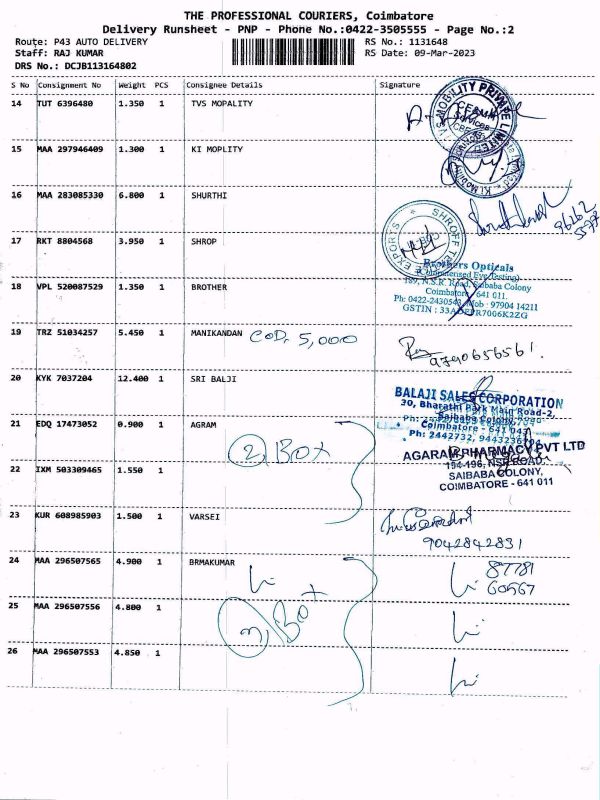 THE PROFESSIONAL COURIERS, Coimbatore
Delivery Runsheet - PNP - Phone No.:0422-3505555 - Page No.:2
Route: P43 AUTO DELIVERY RS No.: 1131648
Staff: RAJ KUMAR RS Date: 09-Mar-2023
DRS No.: DCJB113164802
S No Consignment No Weight PCS Consignee Details Signature
14 TUT 6396480 1.350 1 TVS MOPALITY
15 MAA 297946409 1.300 1 KI MOPLITY
16 MAA 283085330 6.800 1 SHURTHI
96262
17 RKT 8804568 3.950 1 SHROP
SHROFF
EXPORTS
Brothers Opticals
(Computersed Eye Testing)
189, N.S.R. Road, Saibaba Colony
18 VPL 520087529 1.350 1 BROTHER
Coimbatore - 641 011.
Ph: 0422-2430543, Mob - 97904 14211
19 TRZ 51034257 5.450 1 MANIKANDAN COD. 5,000
9790656561.
20 KYK 7037204 12.400 1 SRI BALJI
BALAJI SALES CORPORATION
30, Bharathi Park Main Road-2,
Saibaba Colony,
21 EDQ 17473052 0.900 1 AGRAM
Coimbatore - 641 043
Ph: 2442732, 9443236704
2 Box
AGARAM PHARMACY PVT LTD
194-196, NSR ROAD,
22 IXM 503309465 1.550 1
SAIBABA COLONY,
COIMBATORE - 641 011
23 KUR 608985903 1.500 1 VARSEI
9042842831
24 MAA 296507565 4.900 1 BRMAKUMAR
87781
60567
3 Box
25 MAA 296507556 4.800 1
26 MAA 296507553 4.850 1